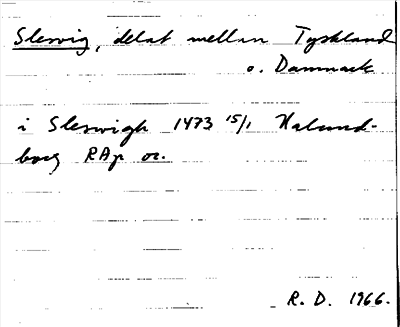 Slesvig, delat mellan Tyskland
o. Danmark
i Sleswigh 1473 15/1 Kalund-
borg RAp or.
R. D. 1966.